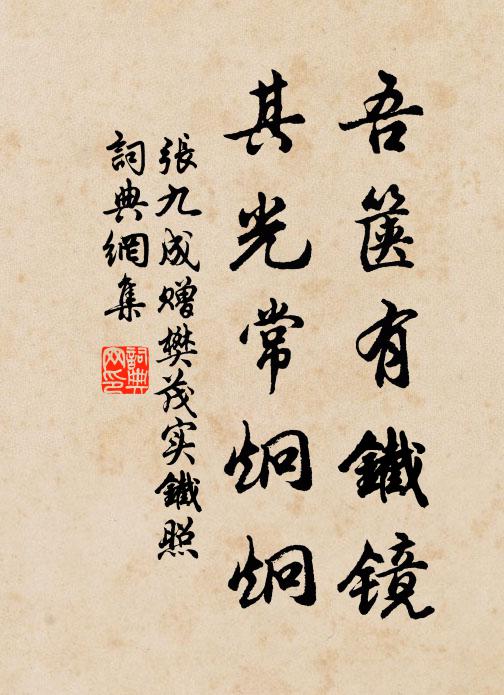 吾箧有鐵镜
其光常炯炯
張九成赠樊茂实鐵照
詞典網集
詞典网印